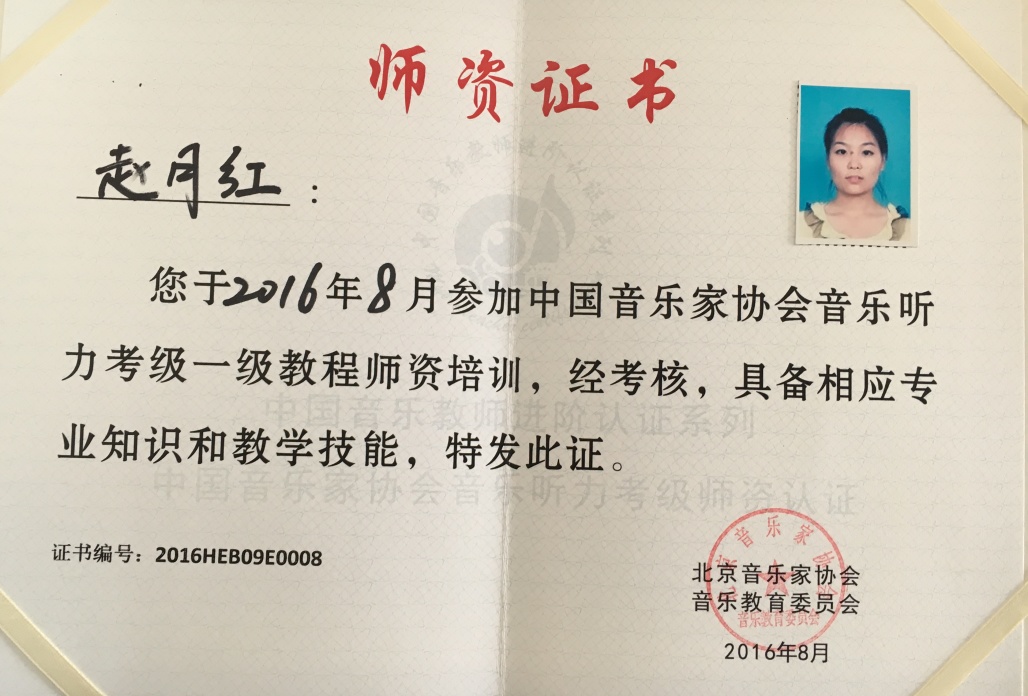 师资证书
赵月红：
您于2016年8月参加中国音乐家协会音乐听
力考级一级教程师资培训，经考核，具备相应专
业知识和教学技能，特发此证。
中国音乐教师进阶认证系列
中国音乐家协会音乐听力考级师资认证
证书编号：2016HEB09E0008
北京音乐家协会
音乐教育委员会
2016年8月
北京音乐家协会
音乐教育委员会